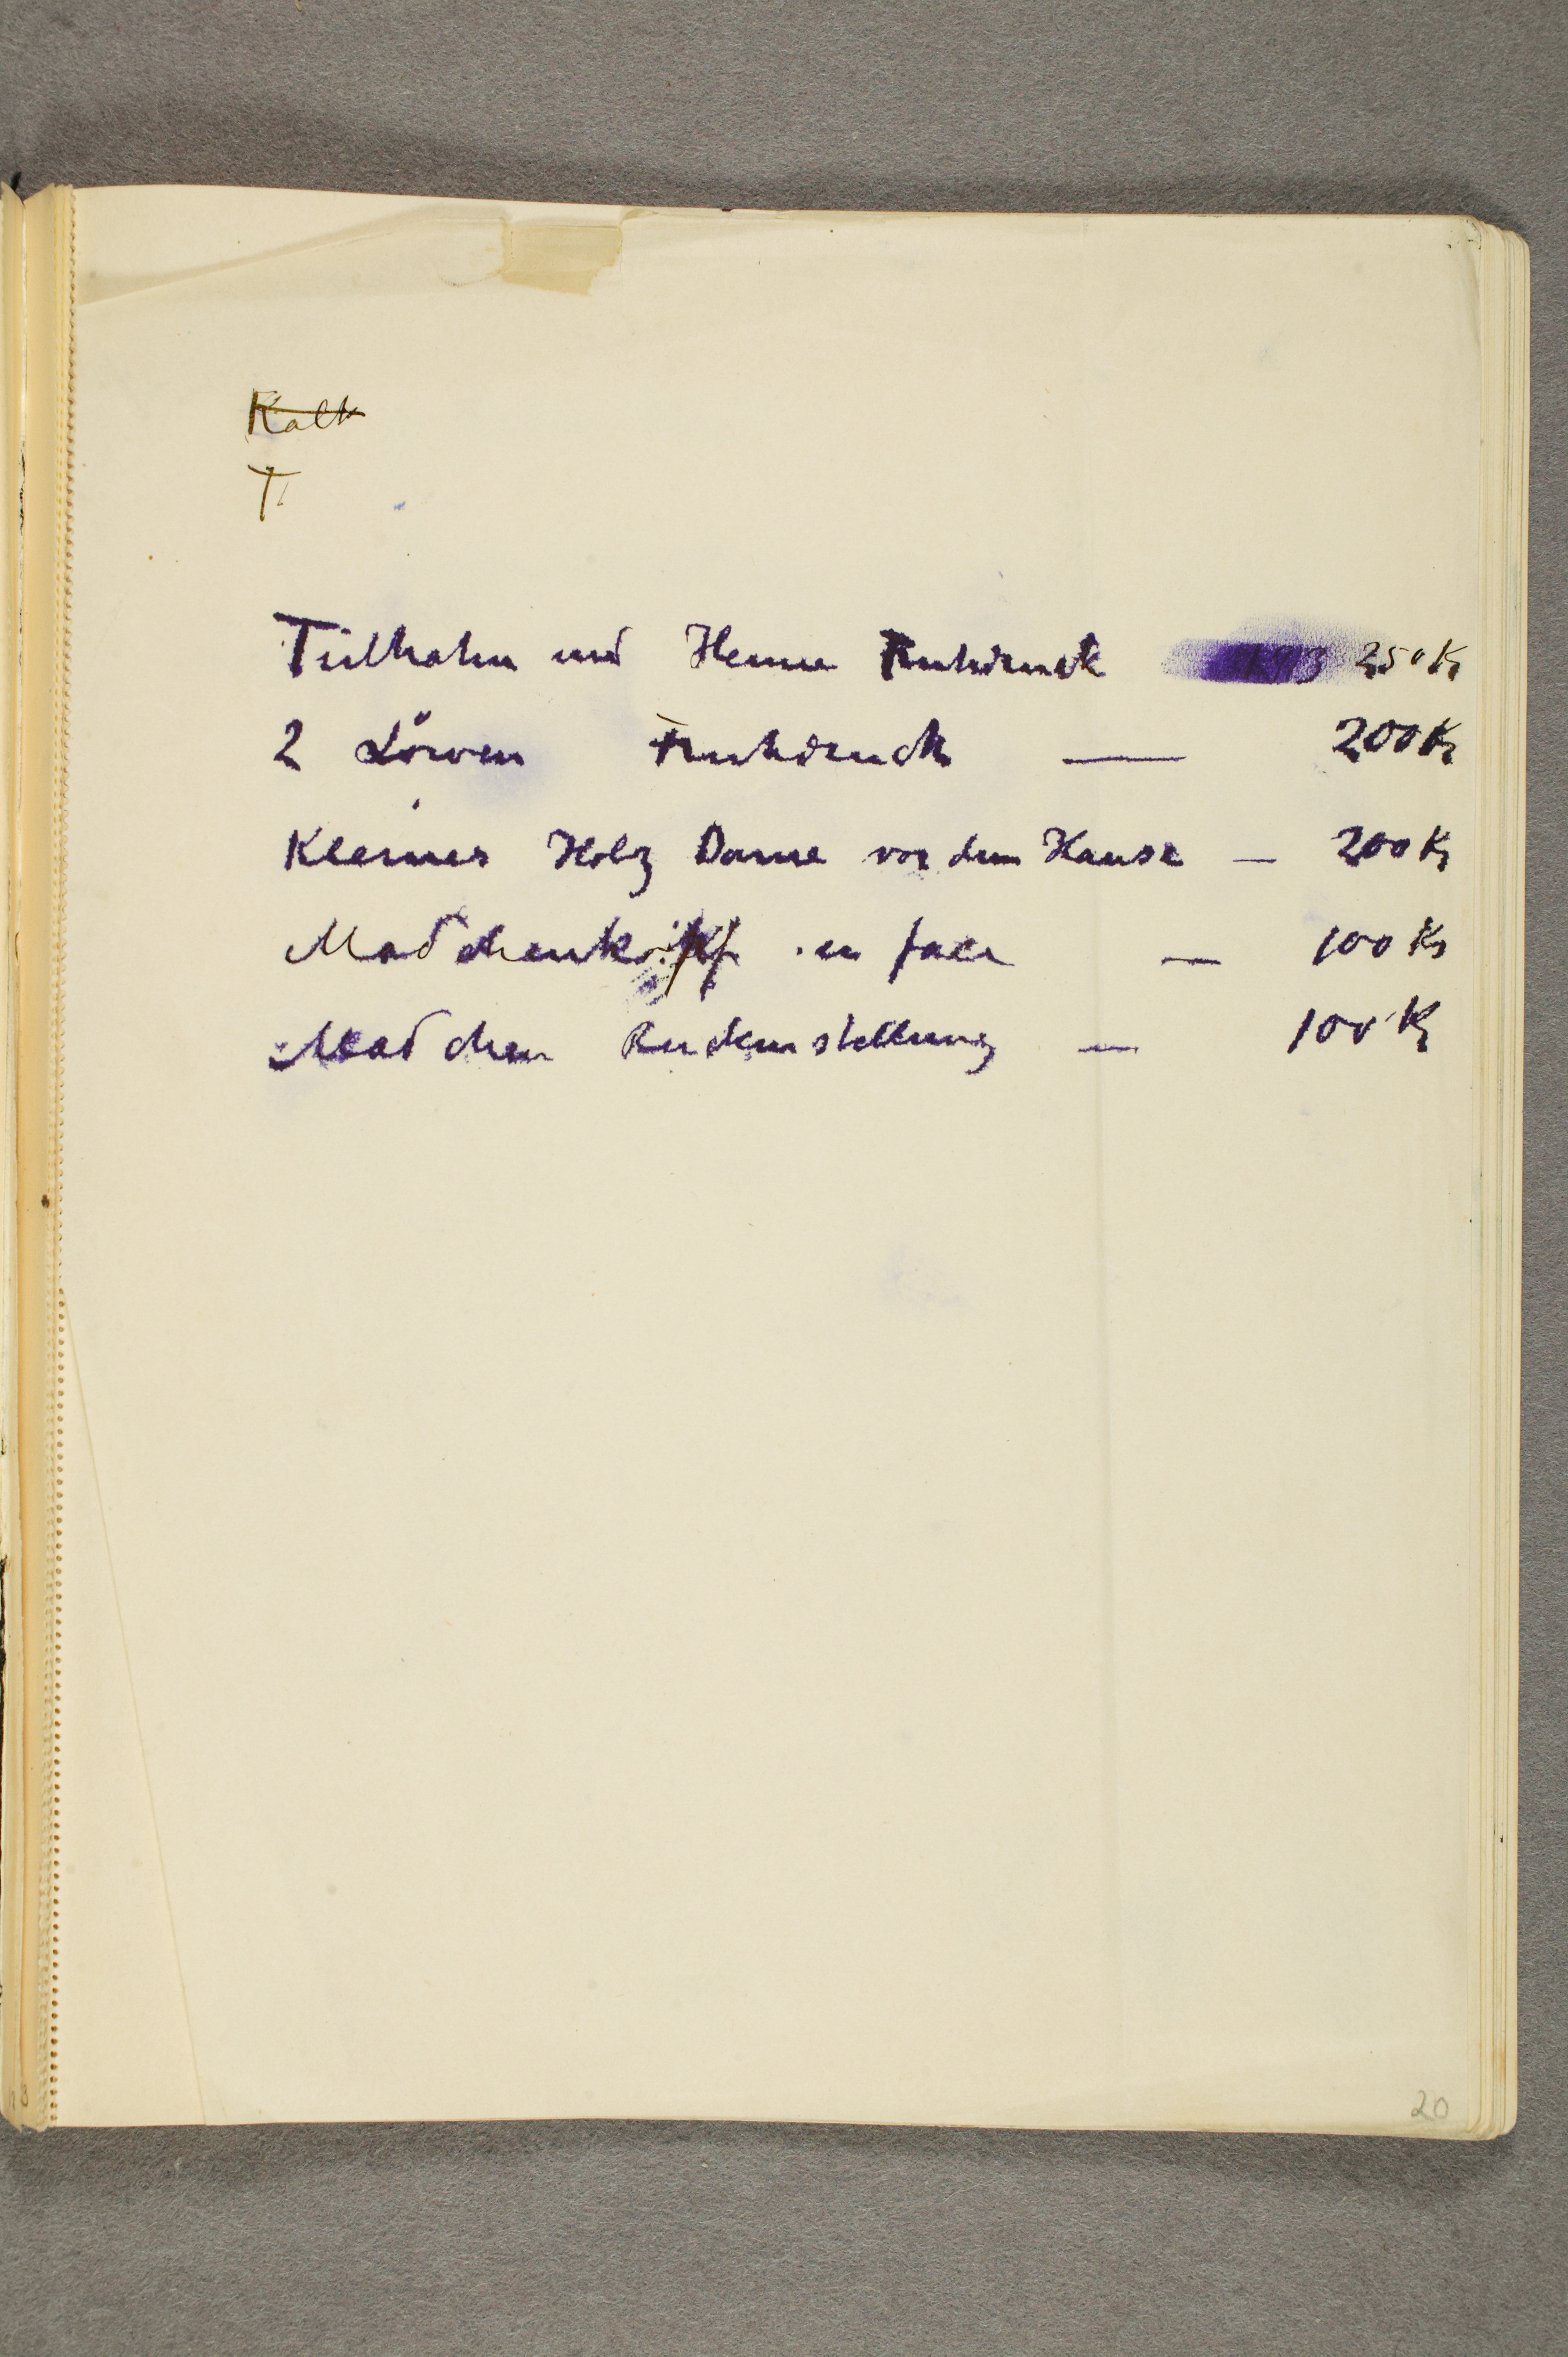 Kalk
T
Trulhahn und Henne Fruhdruck 1913 250 Kr
2 Löwen Fruhdruck — 200 Kr
Kleines Holz Dame vor dem Hause — 200 Kr
Madchenkopf en face — 100 Kr
Madchen Ruckenstellung — 100 Kr
20